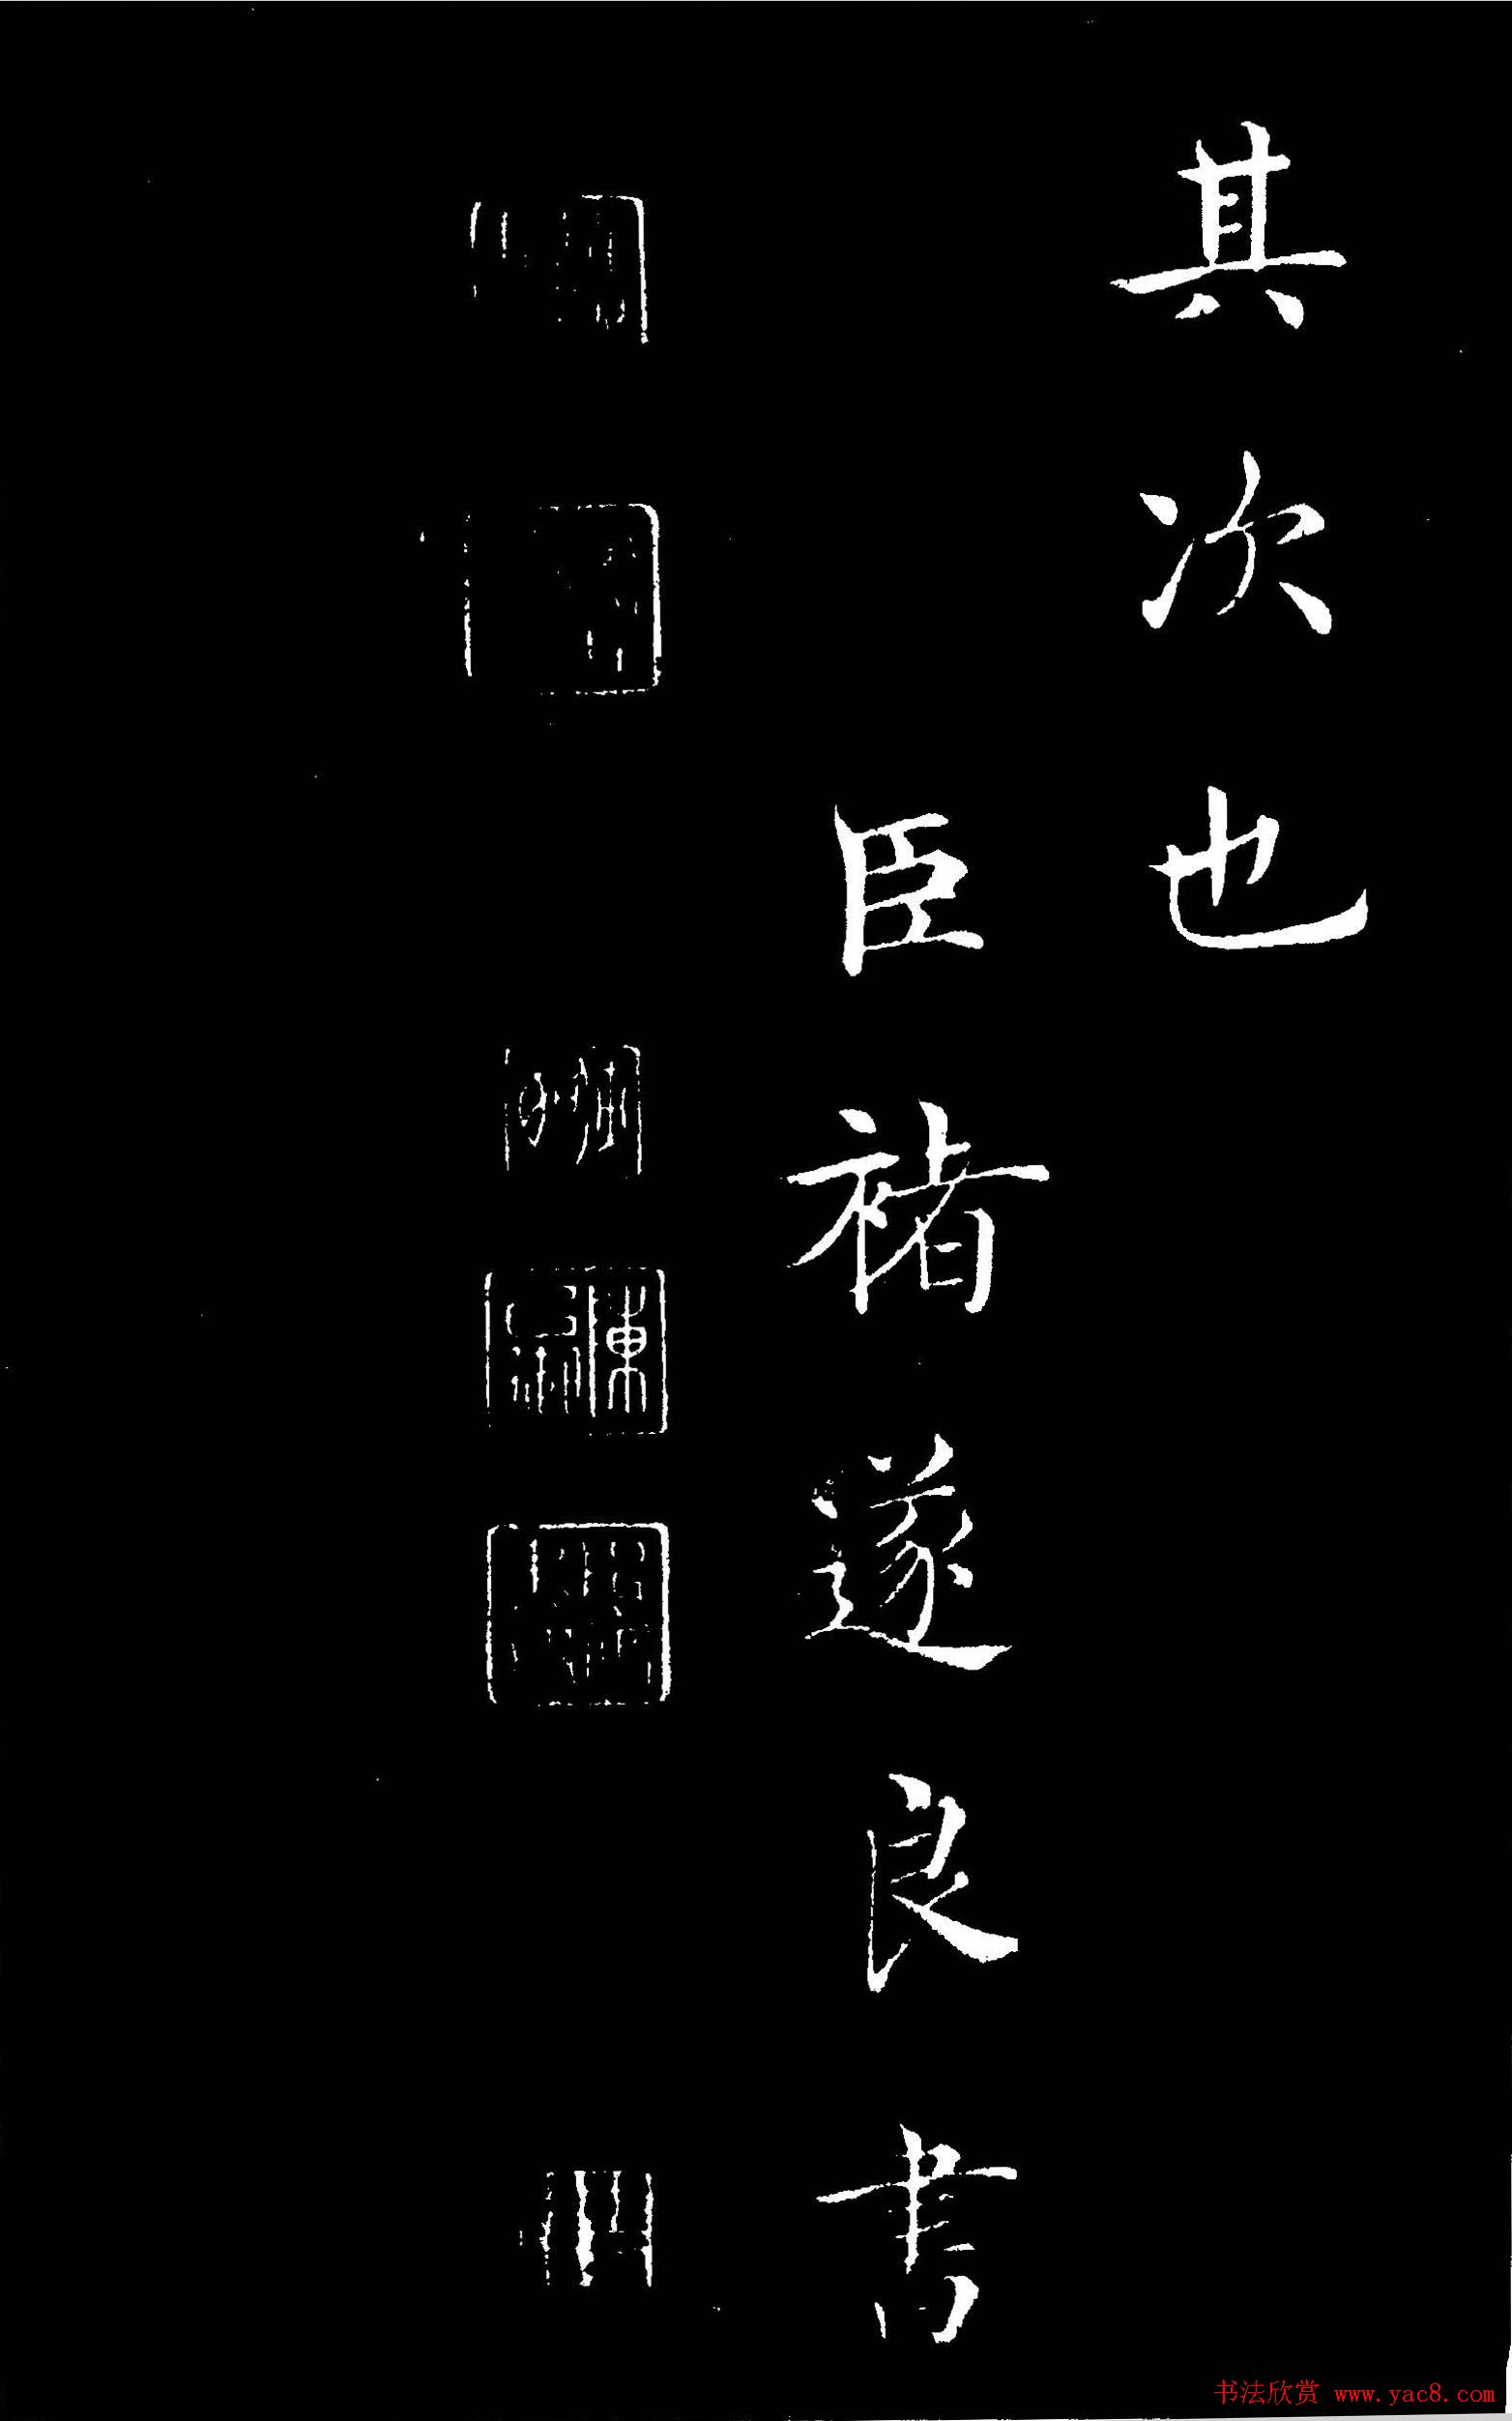 其次也
臣褚遂良書
书法欣赏 www.yac8.com